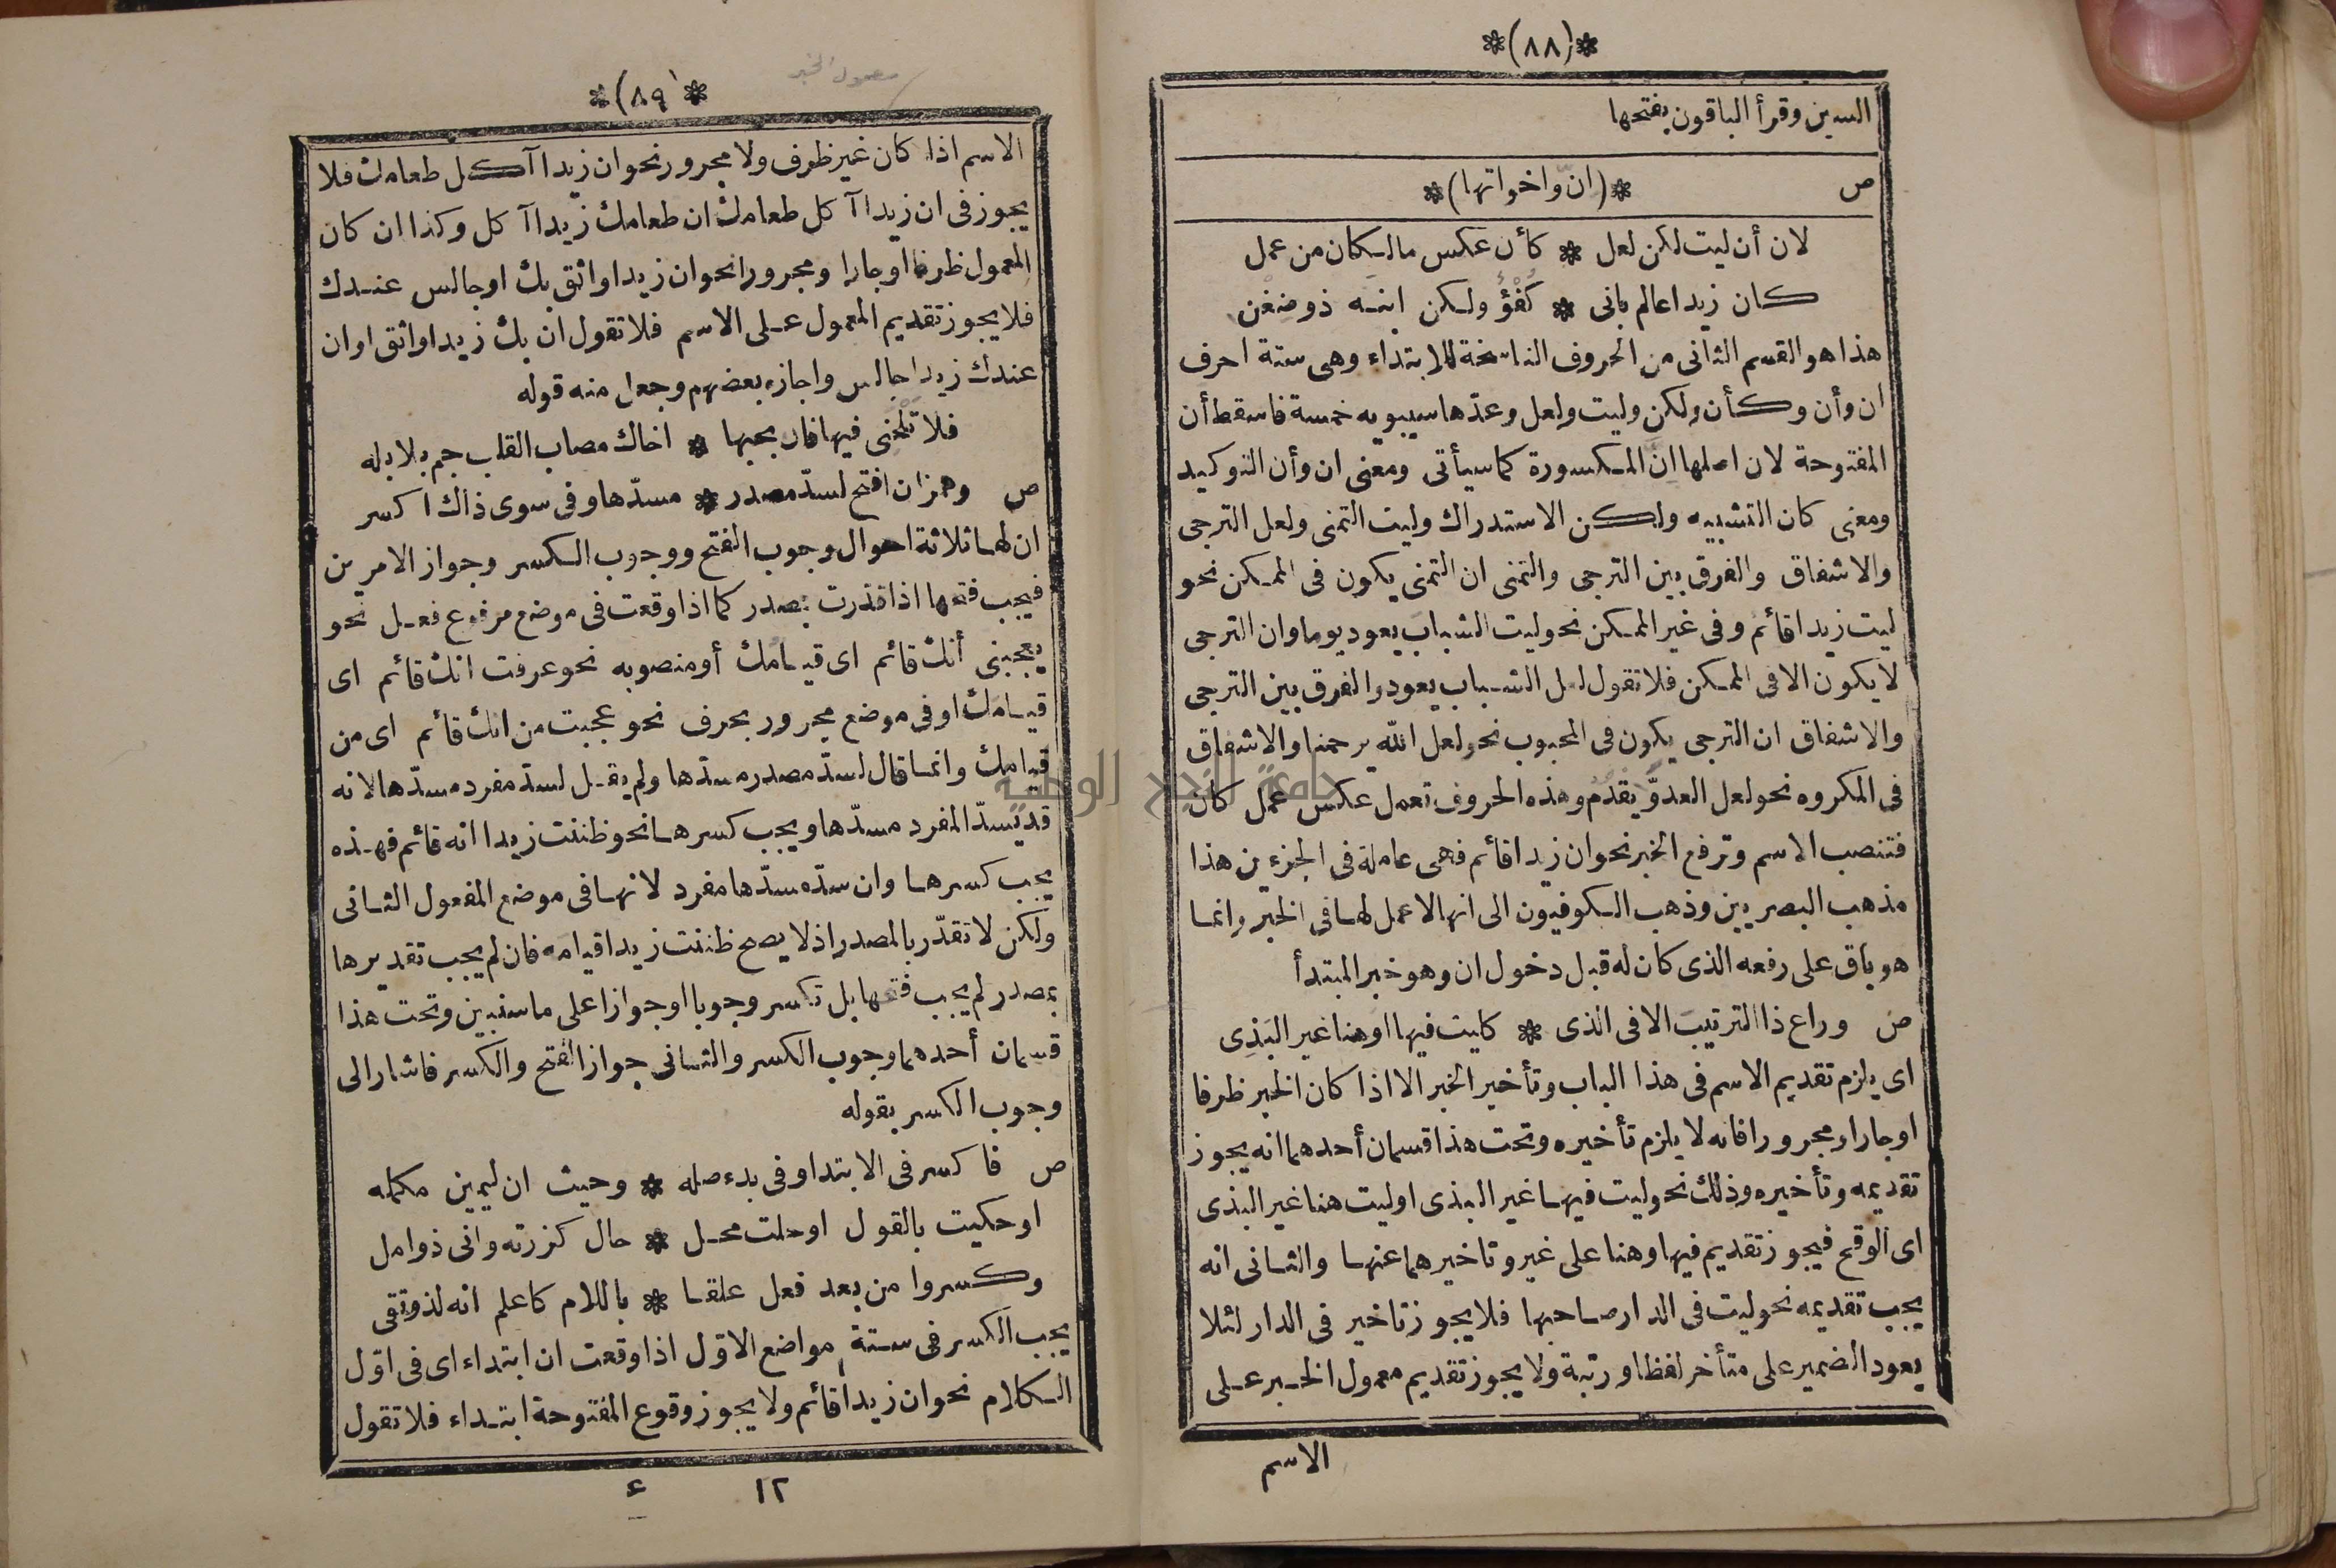 *(٨٨)*
السين وقرأ الباقون بفتحها
ص *(انّ واخواتها)*
لان أن ليت لكن لعل * كأن عكس مالكان من عمل
كان زيدا عالم بانى * كُفْؤُ ولكن ابنه ذو ضِغْن
هذا هو القسم الثانى من الحروف الناسخة للابتداء وهى ستة احرف
ان وأن وكأن ولكن وليت ولعل وعدّها سيبويه خمسة فاسقط أن
المفتوحة لان اصلها انَّ المكسورة كما سيأتى ومعنى ان وأن التوكيد
ومعنى كان التشبيه ولكن الاستدراك وليت التمنى ولعل الترجى
والاشفاق والفرق بين الترجى والتمنى ان التمنى يكون فى الممكن نحو
ليت زيدا قائم وفى غير الممكن نحو ليت الشباب يعود يوما وان الترجى
لا يكون الا فى الممكن فلا تقول لعل الشباب يعود والفرق بين الترجى
والاشفاق ان الترجى يكون فى المحبوب نحو لعل الله يرحمنا والاشفاق
فى المكروه نحو لعل العدوّ يقدم وهذه الحروف تعمل عكس عمل كان
فتنصب الاسم وترفع الخبر نحو ان زيدا قائم فهى عاملة فى الجزءين هذا
مذهب البصريين وذهب الكوفيون الى انها لا عمل لها فى الخبر وانما
هو باق على رفعه الذى كان له قبل دخول ان وهو خبر المبتدأ
ص وراع ذا الترتيب الا فى الذى * كليت فيها او هنا غير البَذِى
اى يلزم تقديم الاسم فى هذا الباب وتأخير الخبر الا اذا كان الخبر ظرفا
او جارا ومجرورا فانه لا يلزم تأخيره وتحت هذا قسمان أحدهما انه يجوز
تقديمه وتأخيره وذلك نحو ليت فيها غير البذى او ليت هنا غير البذى
اى الوقح فيجوز تقديم فيها وهنا على غير وتاخيرهما عنها والثانى انه
يجب تقديمه نحو ليت فى الدار صاحبها فلا يجوز تاخير فى الدار لئلا
يعود الضمير على متأخر لفظا ورتبة ولا يجوز تقديم معمول الخبر على
الاسم
معمول الخبر
*(٨٩)*
الاسم اذا كان غير ظرف ولا مجرور نحو ان زيدا آكل طعامك فلا
يجوز فى ان زيدا آكل طعامك ان طعامك زيدا آكل وكذا ان كان
المعمول ظرفا او جارا ومجرورا نحو ان زيدا واثق بك او جالس عندك
فلا يجوز تقديم المعمول على الاسم فلا تقول ان بك زيدا واثق او ان
عندك زيدا جالس واجازه بعضهم وجعل منه قوله
فلا تَلْحَنى فيها فان بحبها * اخاك مصاب القلب جم بلابله
ص وهمز ان افتح لسدّ مصدر * مسدّها وفى سوى ذاك اكسر
ان لها ثلاثة احوال وجوب الفتح ووجوب الكسر وجواز الامرين
فيجب فتحها اذا قدرت بمصدر كما اذا وقعت فى موضع مرفوع فعل نحو
يعجبنى أنك قائم اى قيامك أو منصوبه نحو عرفت انك قائم اى
قيامك او فى موضع مجرور بحرف نحو عجبت من انك قائم اى من
قيامك وانما قال لسدّ مصدر مسدّها ولم يقل لسدّ مفرد مسدّها لانه
قد يسدّ المفرد مسدّها ويجب كسرها نحو ظننت زيدا انه قائم فهذه
يجب كسرها وان سدّ مسدّها مفرد لانها فى موضع المفعول الثانى
ولكن لا تقدّر بالمصدر اذ لا يصح ظننت زيدا قيامه فان لم يجب تقديرها
بمصدر لم يجب فتحها بل تكسر وجوبا او جوازا على ما سنبين وتحت هذا
قسمان أحدهما وجوب الكسر والثانى جواز الفتح والكسر فاشار الى
وجوب الكسر بقوله
ص فاكسر فى الابتدا وفى بدء صله * وحيث ان ليمين مكمله
او حكيت بالقول او حلت محل * حال كزرته وانى ذو امل
وكسروا من بعد فعل علقا * باللام كاعلم انه لذو تقى
يجب الكسر فى ستة مواضع الاوّل اذا وقعت ان ابتداء اى فى اوّل
الكلام نحو ان زيدا قائم ولا يجوز وقوع المفتوحة ابتداء فلا تقول
١٢ ع
جامعة النجاح الوطنية